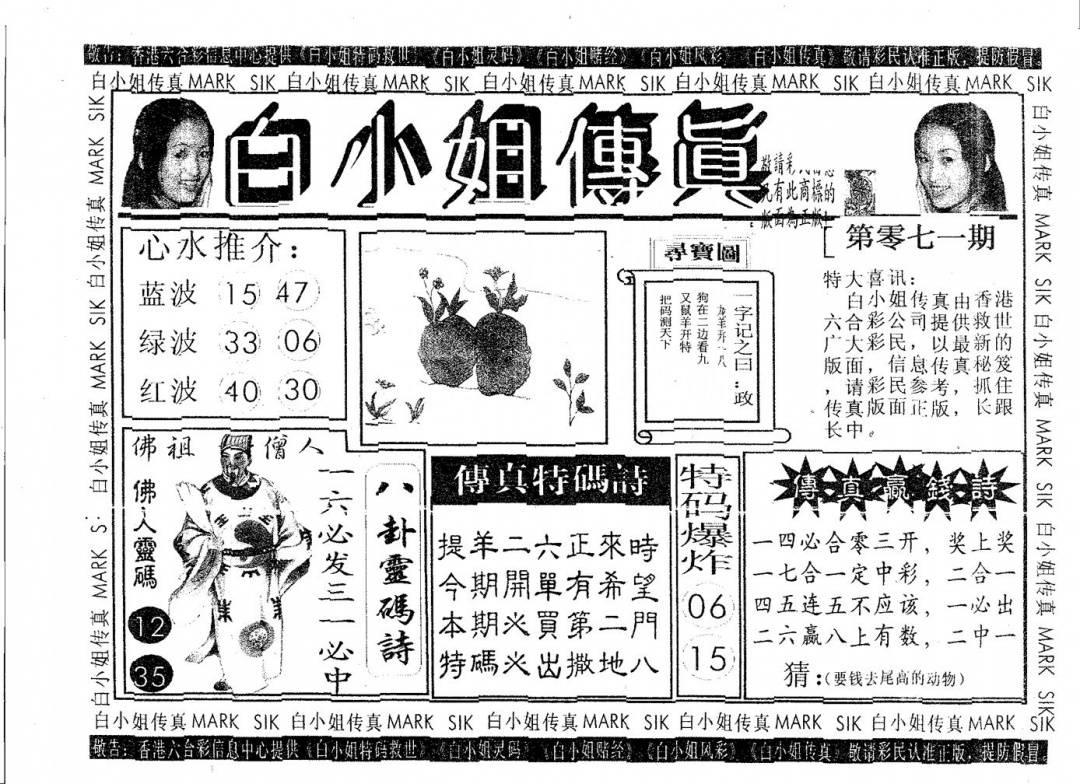 敬告：香港六合彩信息中心提供《白小姐特码救世》《白小姐灵码》《白小姐赌经》《白小姐风彩》《白小姐传真》敬请彩民认准正版，提防假冒
白小姐传真 MARK SIK 白小姐传真 MARK SIK 白小姐传真 MARK SIK 白小姐传真 MARK SIK 白小姐传真 MARK SIK
白小姐傳真
敬請彩
有此商標的
版面為正版
第零七一期
心水推介：
蓝波 15 47
绿波 33 06
红波 40 30
尋寶圖
一字记之曰：政
龙羊开一八
狗在二边看九
又鼠羊开特
把码测天下
特大喜讯：
白小姐传真由香港
六合彩公司提供救世
广大彩民，以最新的
版面，信息传真秘笈
，请彩民参考，抓住
传真版面正版，长跟
长中。
佛祖僧人
佛人靈碼
12
35
一六必发三一必中
八卦靈碼詩
傳真特碼詩
提羊二六正來時
今期開單有希望
本期火買第二門
特碼火出撒地八
特码爆炸
06
15
傳真贏錢詩
一四必合零三开，奖上奖
一七合一定中彩，二合一
四五连五不应该，一必出
二六赢八上有数，二中一
猜：(要钱去尾高的动物)
白小姐传真 MARK SIK 白小姐传真 MARK SIK 白小姐传真 MARK SIK 白小姐传真 MARK SIK 白小姐传真 MARK SIK
敬告：香港六合彩信息中心提供《白小姐特码救世》《白小姐灵码》《白小姐赌经》《白小姐风彩》《白小姐传真》敬请彩民认准正版，提防假冒
白小姐传真 MARK SIK 白小姐传真 MARK SIK 白小姐传真 MARK SIK
白小姐传真 MARK SIK 白小姐传真 MARK SIK 白小姐传真 MARK SIK